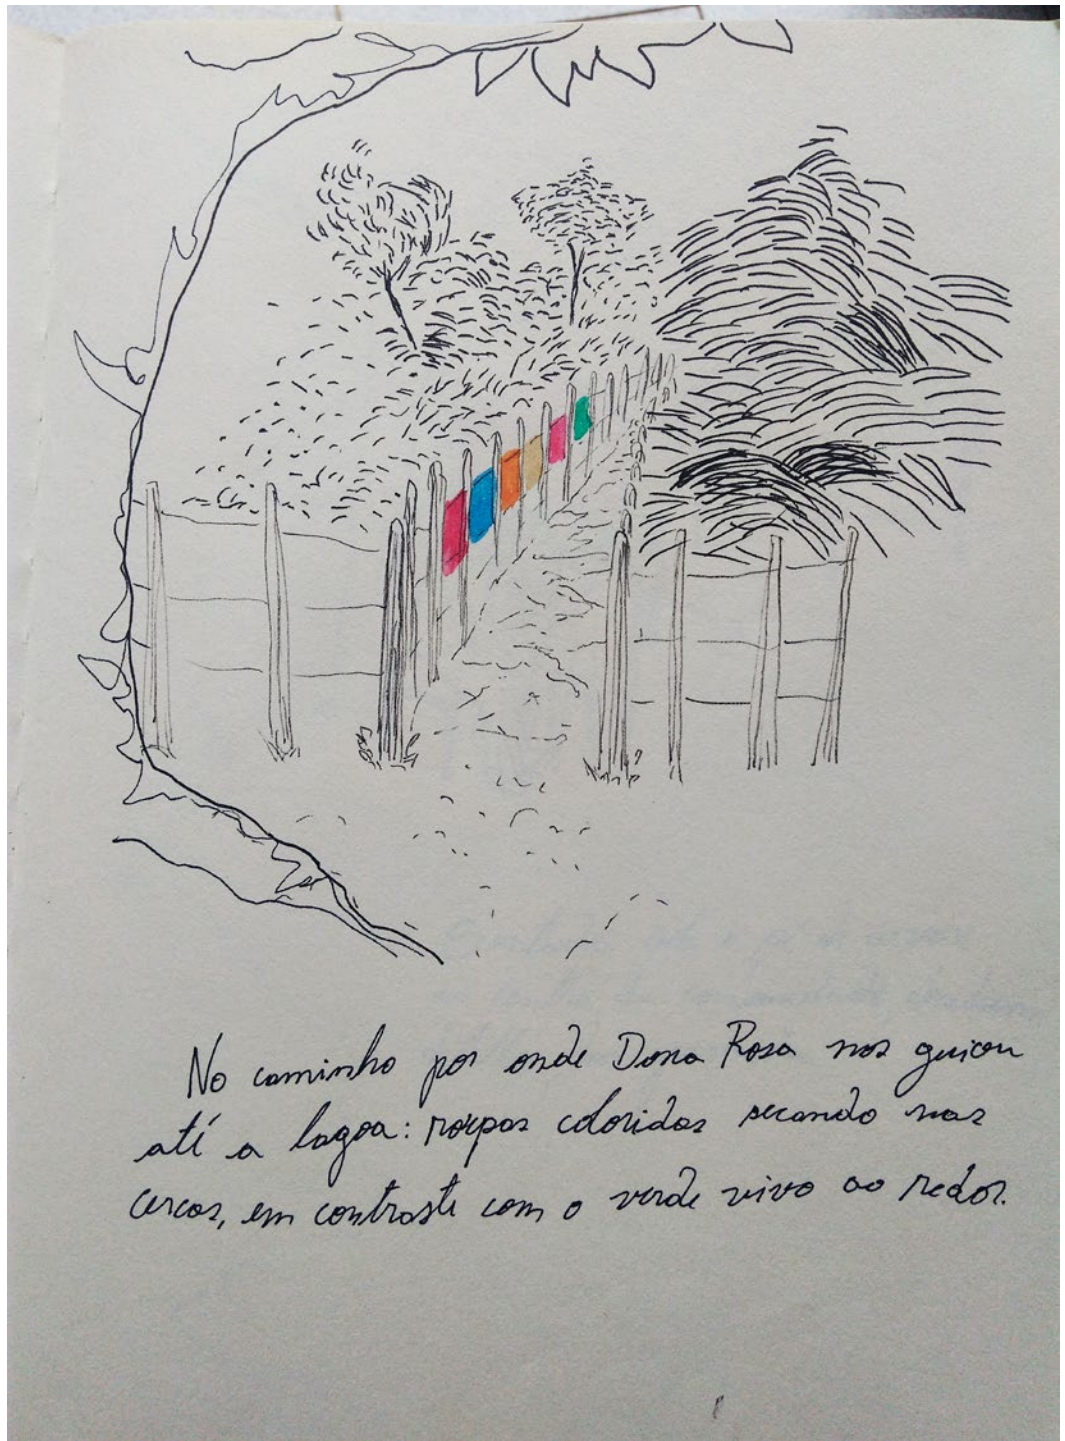 No caminho por onde Dona Rosa nos guiou
até a lagoa: roupas coloridas secando nas
cercas, em contraste com o verde vivo ao redor.